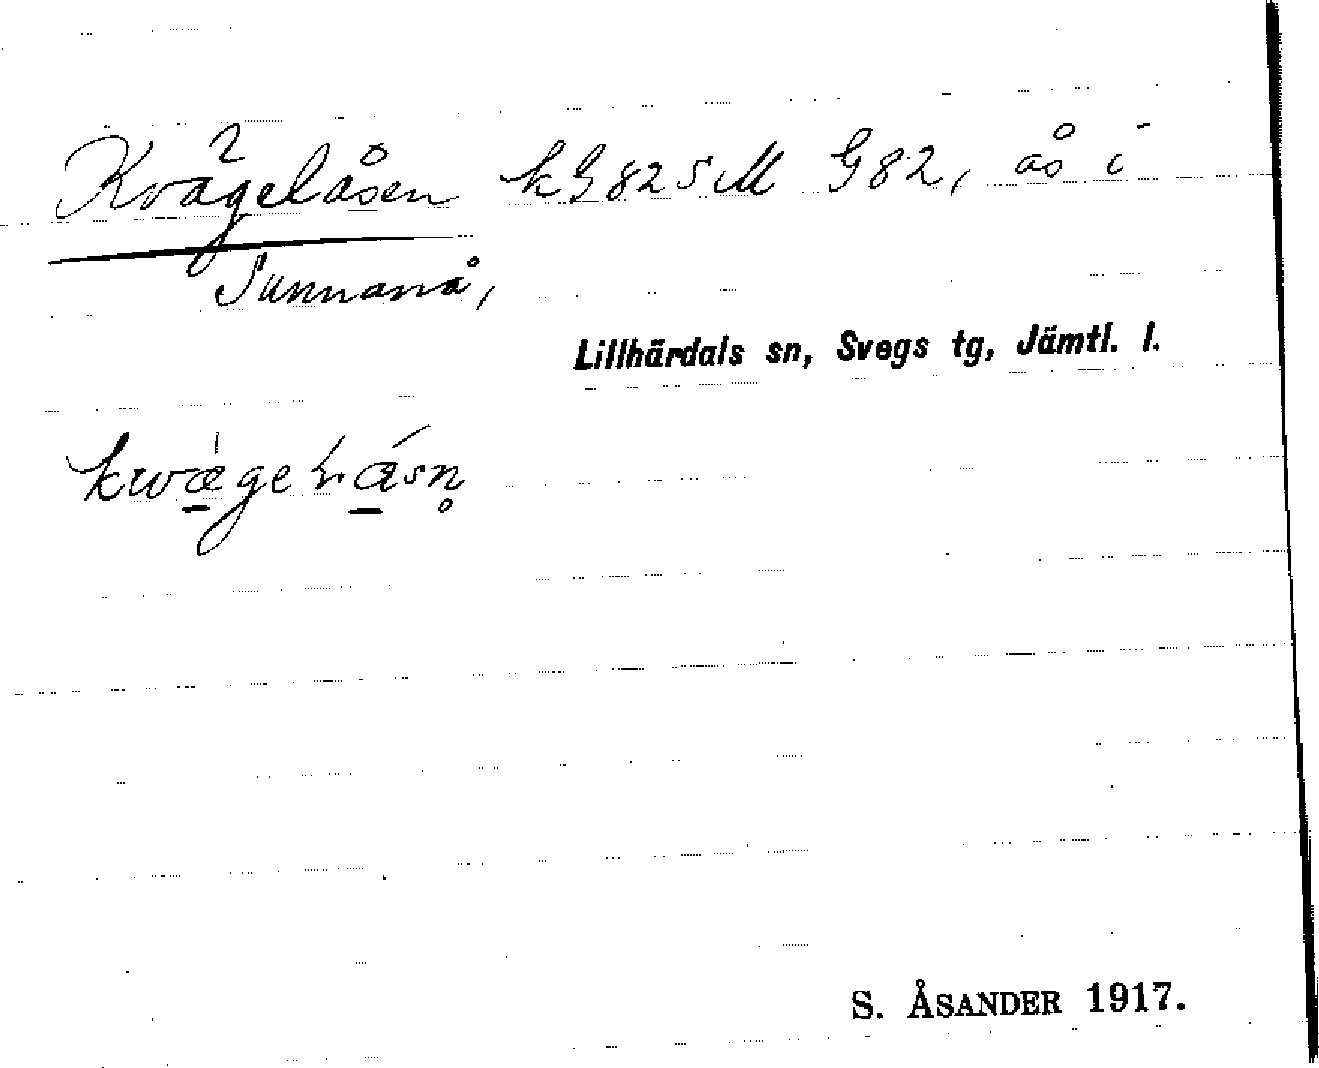 Kvågelåsen kG82SM G82, ås i
Sunnanå,
Lillhärdals sn, Svegs tg, Jämtl. l.
S. ÅSANDER 1917.